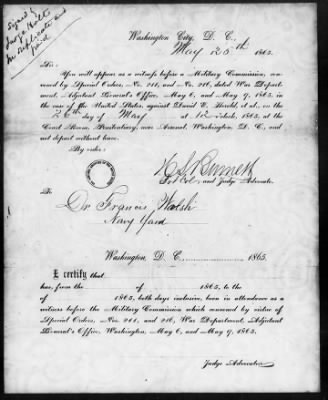 Signed by
Judge Holt
in duplicate and
paid
Washington City, D. C.,
May 25th 1865.
Sir:
You will appear as a witness before a Military Commission, convened by Special Orders, No. 211, and No. 216, dated War Department, Adjutant General's Office, May 6, and May 9, 1865, in
the case of the United States, against David E. Herold, et al., on the
26th day of May at 12 o'clock, 1865, at the
Court Room, Penitentiary, near Arsenal, Washington, D. C., and
not depart without leave.
By order:
H L Burnett
Bvt Col, and Judge Advocate.
To
Dr Francis Walsh
Navy Yard
Washington, D. C. 1865.
I certify that
has, from the of 1865, to the
of 1865, both days inclusive, been in attendance as a
witness before the Military Commission which convened by virtue of
Special Orders, Nos. 211, and 216, War Department, Adjutant
General's Office, Washington, May 6, and May 9, 1865.
Judge Advocate.